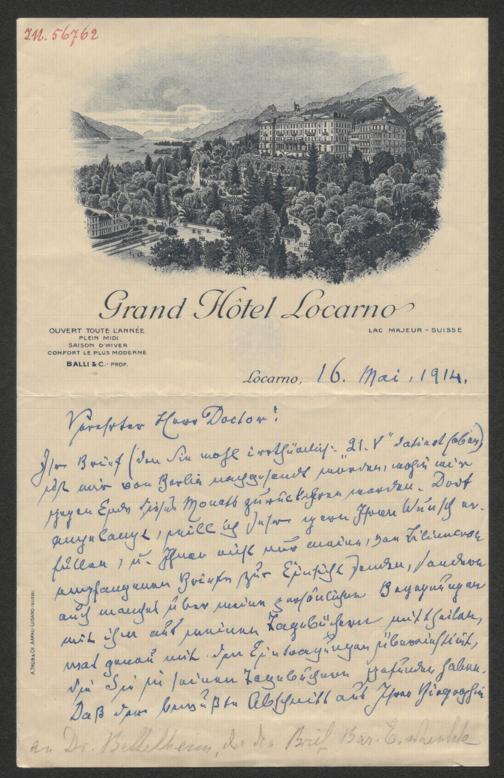 I.N. 56762
Grand Hôtel Locarno
OUVERT TOUTE L'ANNÉE
PLEIN MIDI
SAISON D'HIVER
CONFORT LE PLUS MODERNE
BALLI & C. - PROP.
LAC MAJEUR - SUISSE
Locarno, 16. Mai, 1914.
Verehrter Herr Doctor!
Ihr Brief (den Sie wohl irrthümlich "21. V" datirt haben)
ist mir von Berlin nachgesandt worden, wohin wir
gegen Ende dieses Monats zurückkehren werden. Dort
angelangt, will ich sehr gern Ihren Wunsch er-
füllen, u. Ihnen nicht nur meine, von Liliencron
empfangenen Briefe zur Einsicht senden, sondern
auch manches über meine persönlichen Begegnungen
mit ihm aus meinen Tagebüchern mittheilen,
was genau mit den Eintragungen übereinstimmt,
die Sie in seinen Tagebüchern gefunden haben.
Daß der bewußte Abschnitt aus Ihrer Biographie
an Dr. Bettelheim, der den Brief